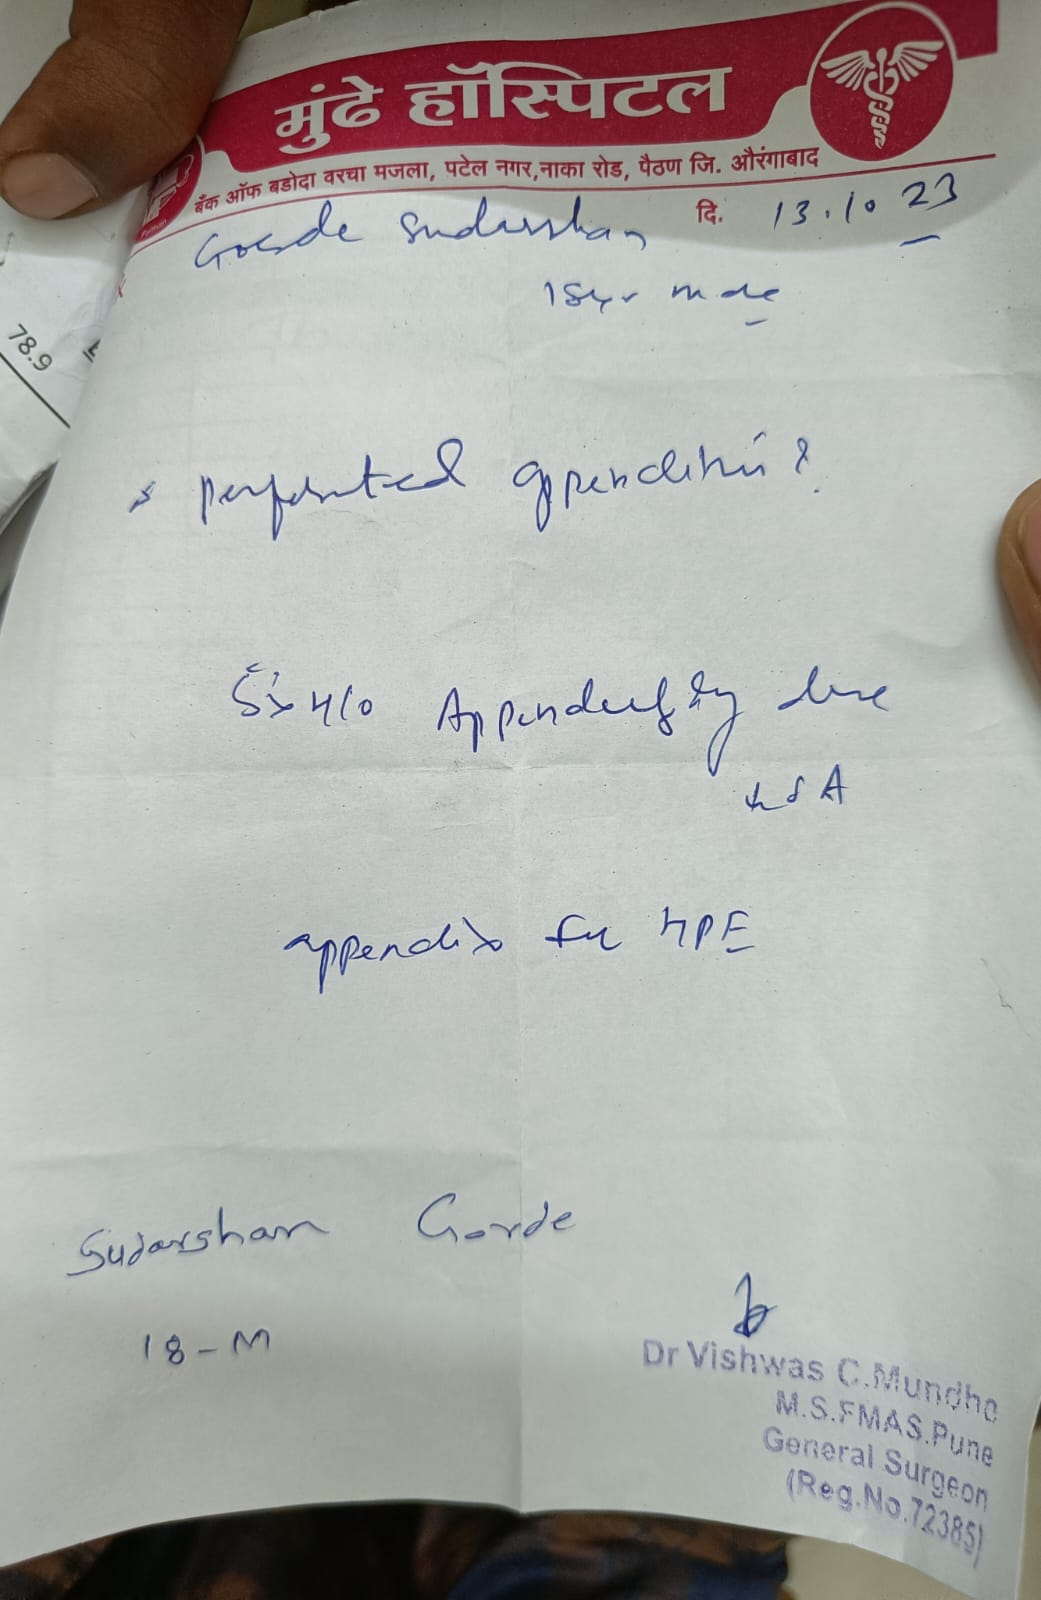 मुंढे हॉस्पिटल
बँक ऑफ बडोदा वरचा मजला, पटेल नगर,नाका रोड, पैठण जि. औरंगाबाद
दि. 13.10.23
Gorde Sudarshan
18yr male
perforated appendicitis?
H/O Appendectomy done
appendix for HPE
Sudarshan Gorde
18-M
Dr Vishwas C.Mundhe
M.S.FMAS.Pune
General Surgeon
(Reg.No.72385)
78.9